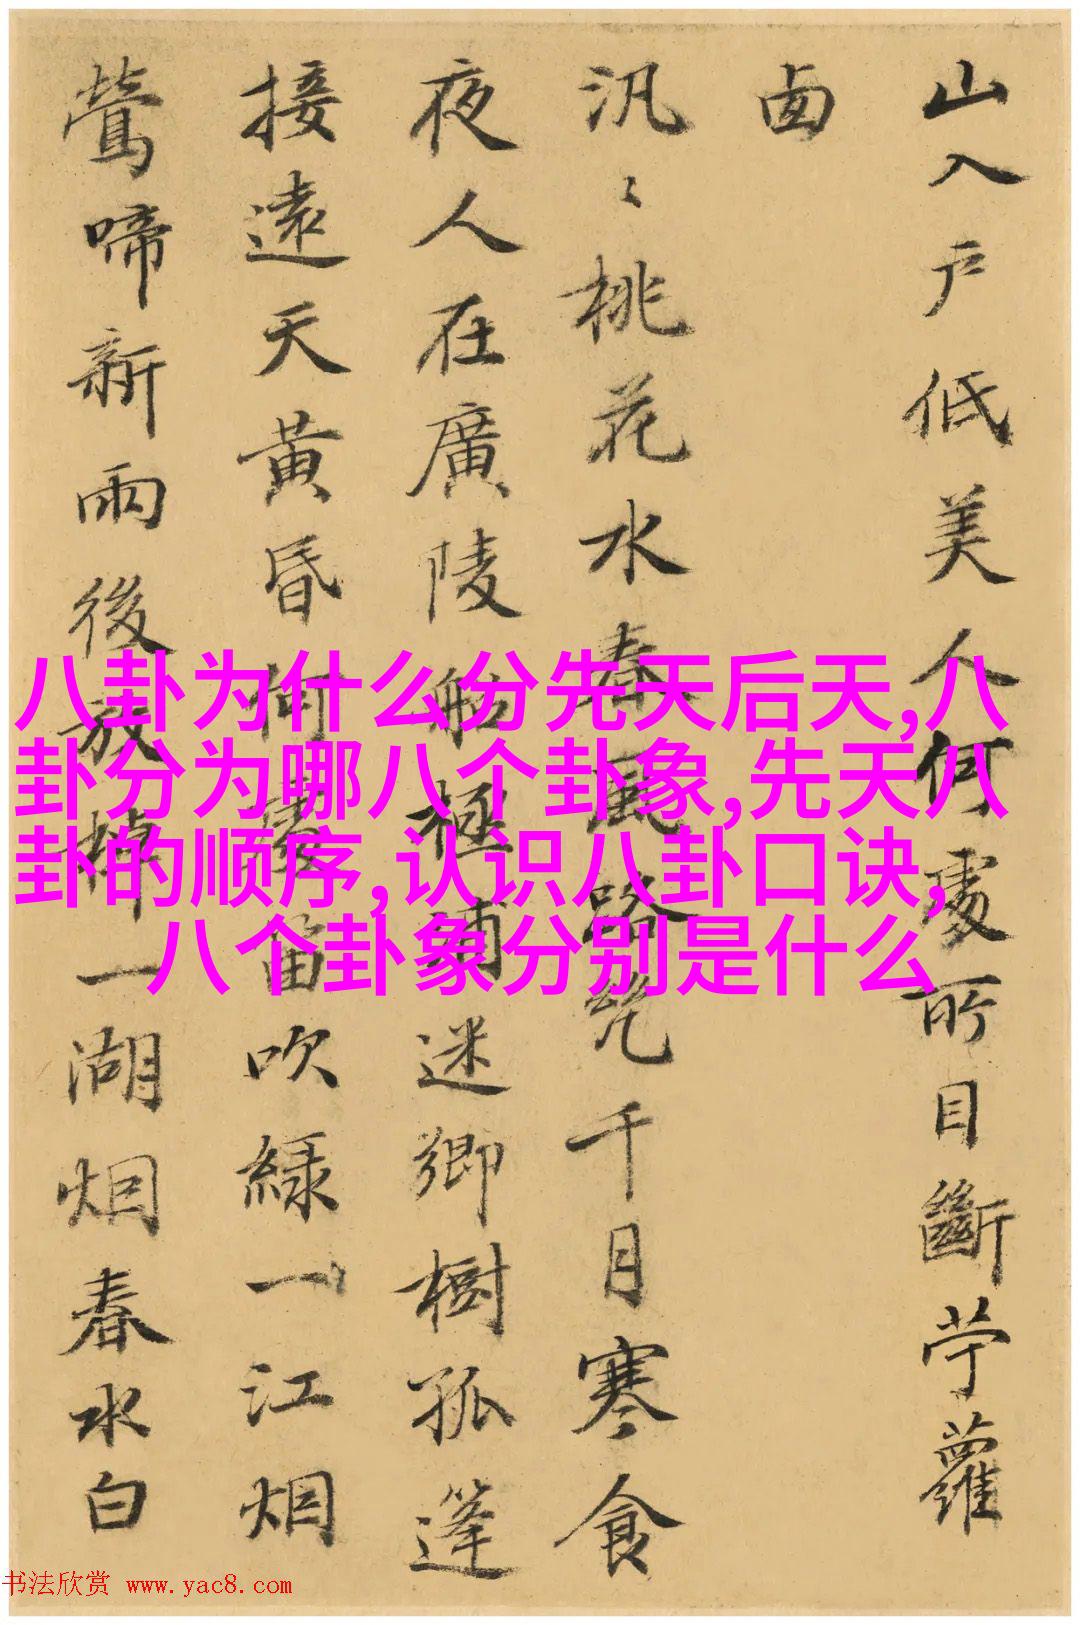 山入户低美人何處所目斷苧蘿
西
汎〻桃花水春風路絶千月寒食
夜人在廣陵船極浦迷鄉樹孤篷
接遠天黄昏何處笛吹緑一江烟
鶯啼新雨後放棹一湖烟春水白
八卦为什么分先天后天,八
卦分为哪八个卦象,先天八
卦的顺序,认识八卦口诀,
八个卦象分别是什么
书法欣赏 www.yac8.com